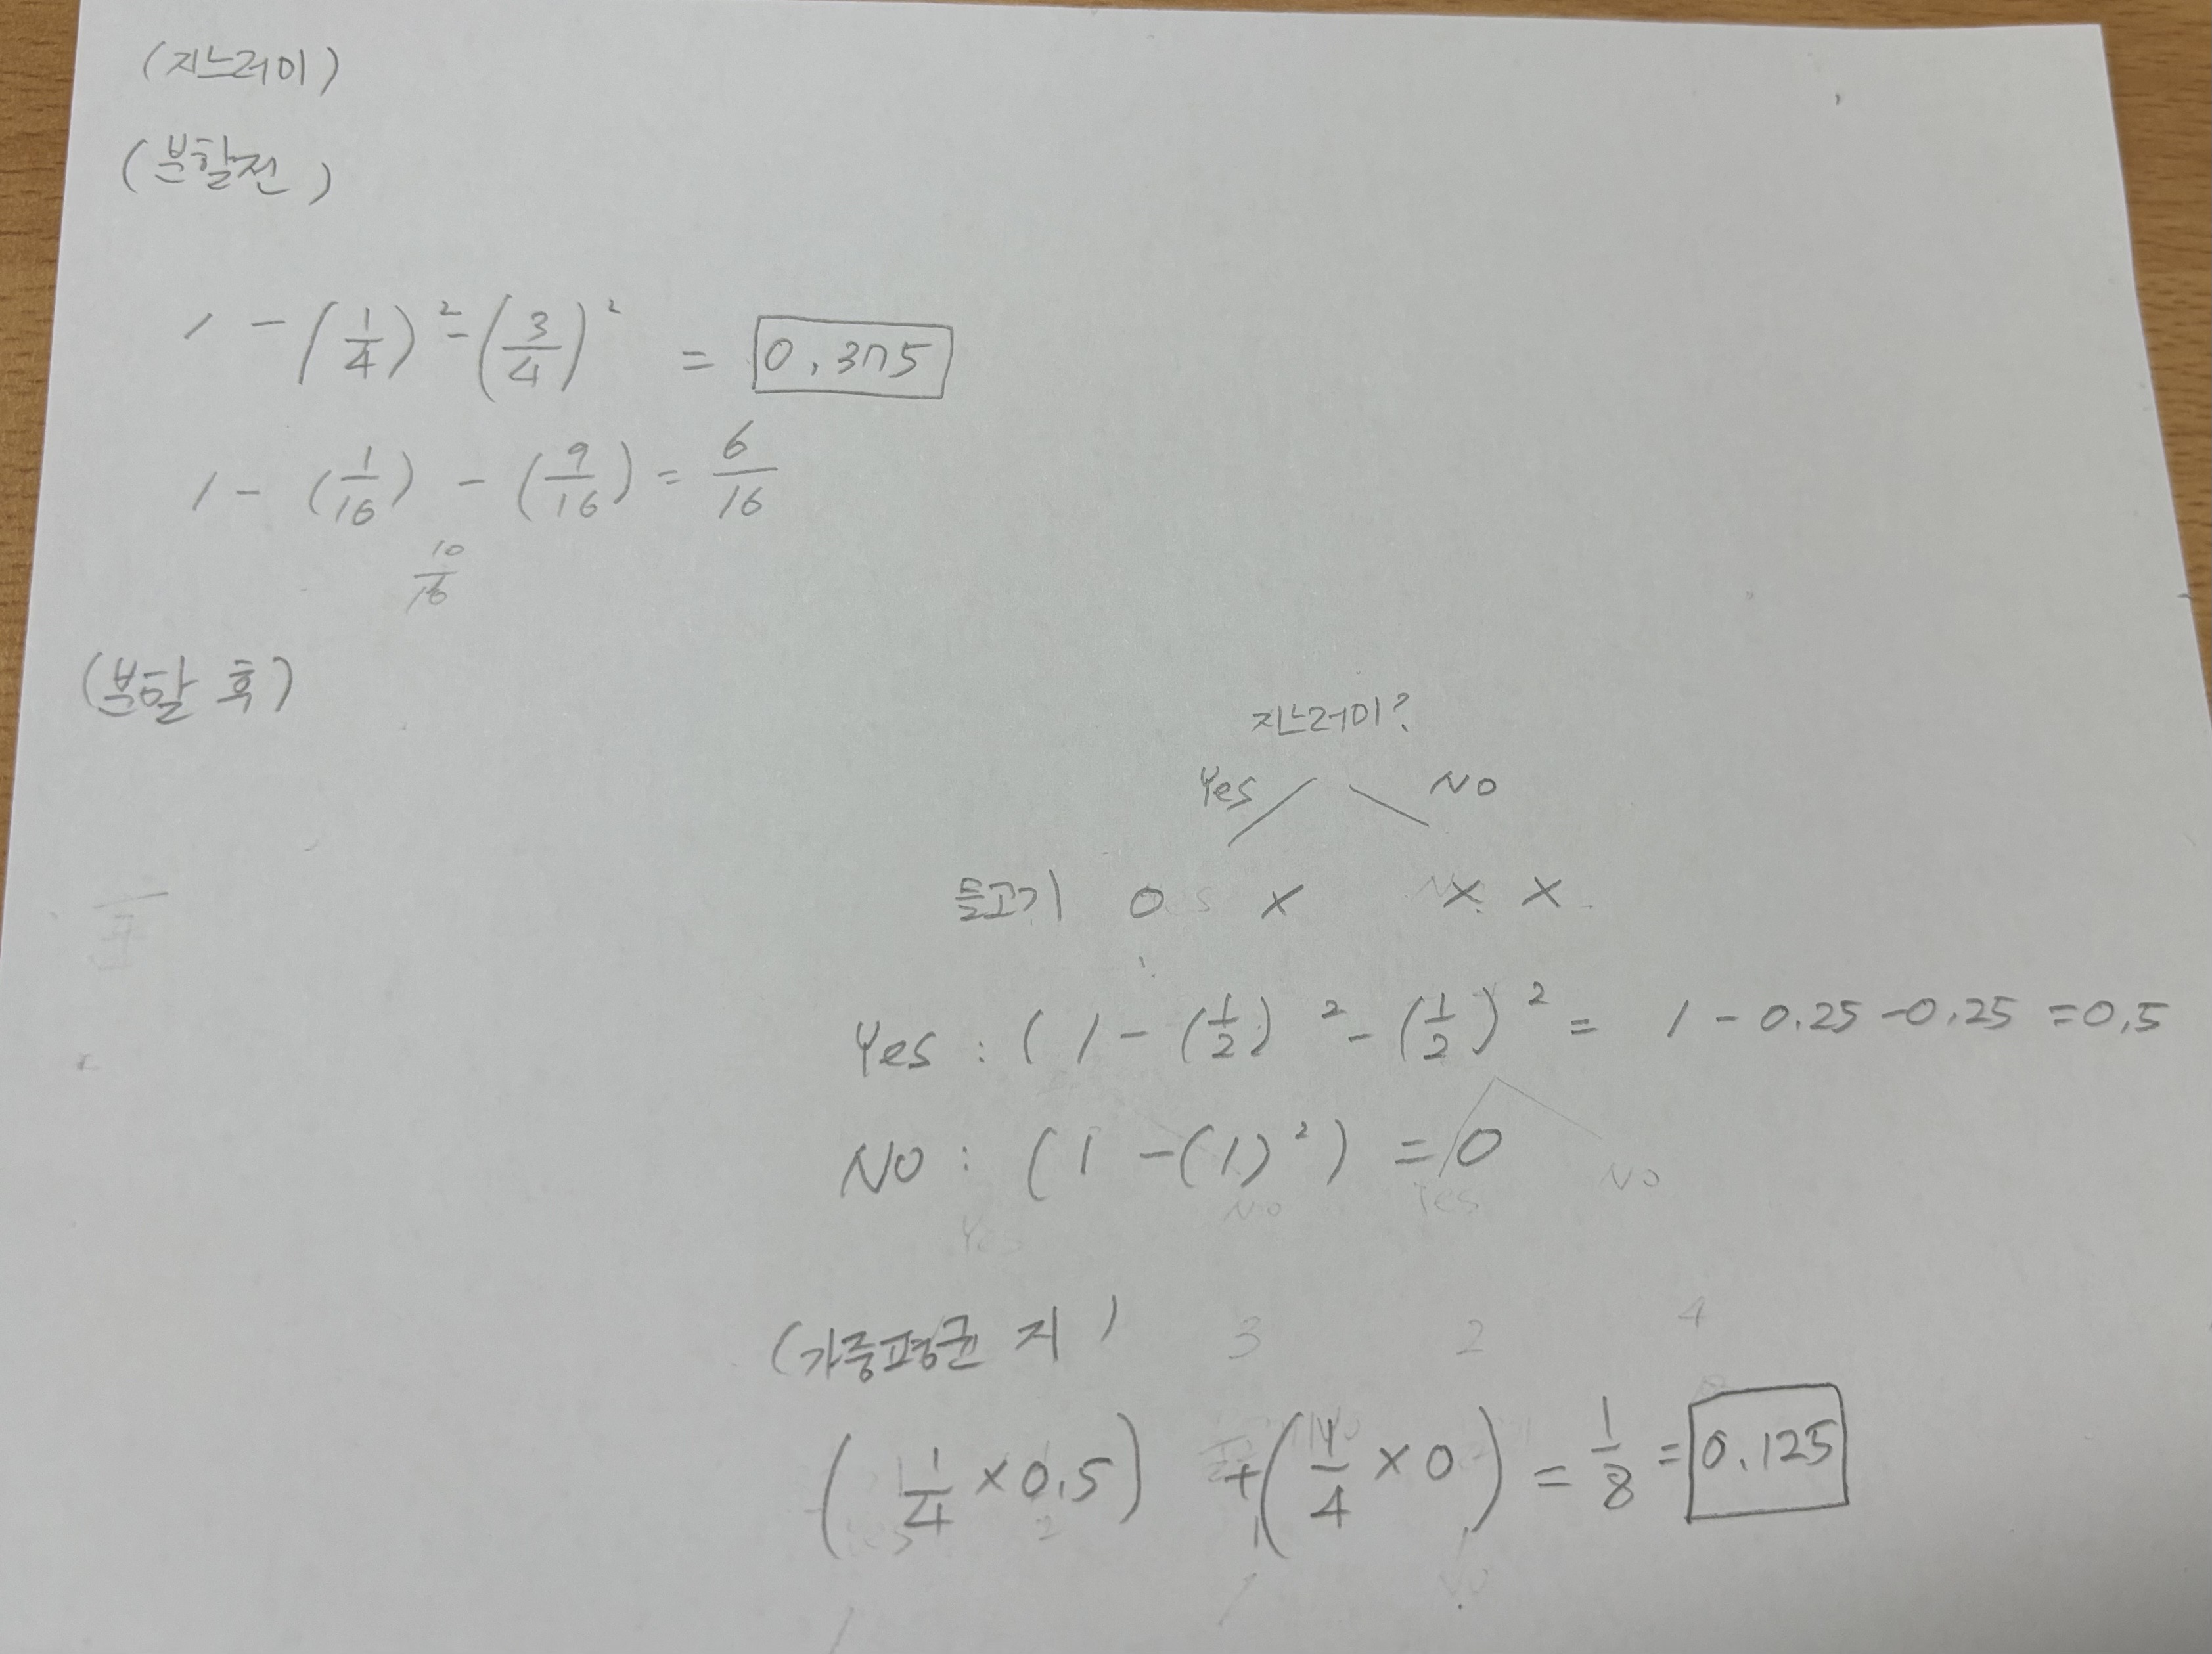 (지느러미)
(분할전)
1 - (1/4)² - (3/4)² = 0.375
1 - (1/16) - (9/16) = 6/16
10/16
(분할 후)
지느러미?
Yes No
물고기 O X X X
Yes : (1 - (1/2)² - (1/2)² = 1 - 0.25 - 0.25 = 0.5
No : (1 - (1)²) = 0
(가중평균 지)
(1/4 × 0.5) + (1/4 × 0) = 1/8 = 0.125